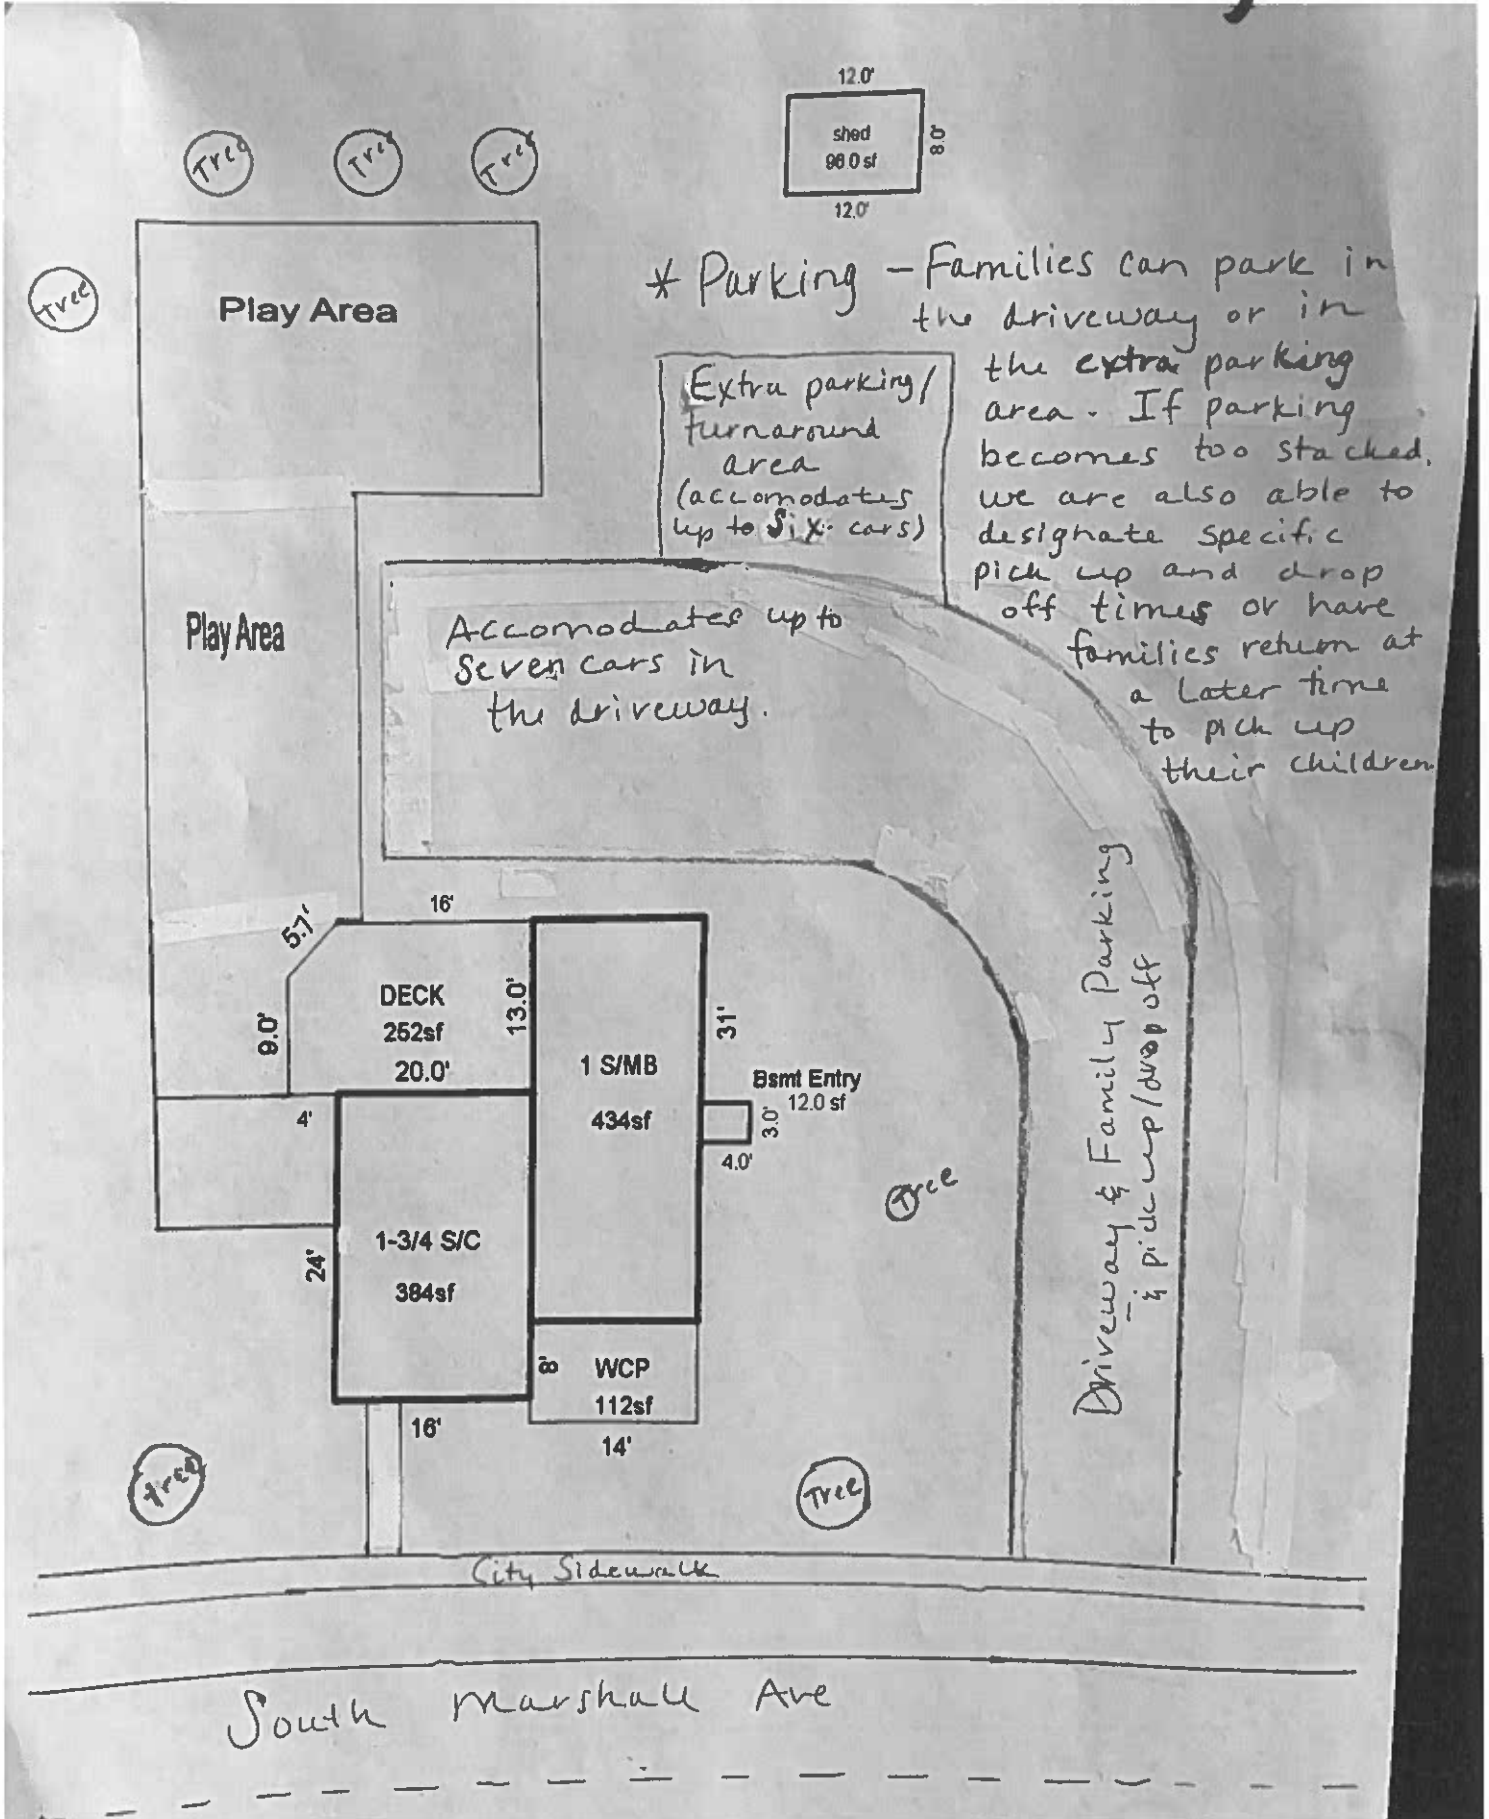 12.0'
shed
96.0 sf
8.0'
12.0'
Tree
Tree
Tree
Tree
Play Area
* Parking - Families can park in
the driveway or in
the extra parking
area. If parking
becomes too stacked,
we are also able to
designate specific
pick up and drop
off times or have
families return at
a later time
to pick up
their children.
Extra parking/
turnaround
area
(accomodates
up to six cars)
Play Area
Accomodates up to
seven cars in
the driveway.
Driveway & Family Parking
& pick up/drop off
16'
5.7'
DECK
252sf
20.0'
9.0'
13.0'
4'
1 S/MB
434sf
31'
Bsmt Entry
12.0 sf
3.0'
4.0'
Tree
1-3/4 S/C
384sf
24'
16'
8'
WCP
112sf
14'
Tree
Tree
City Sidewalk
South Marshall Ave